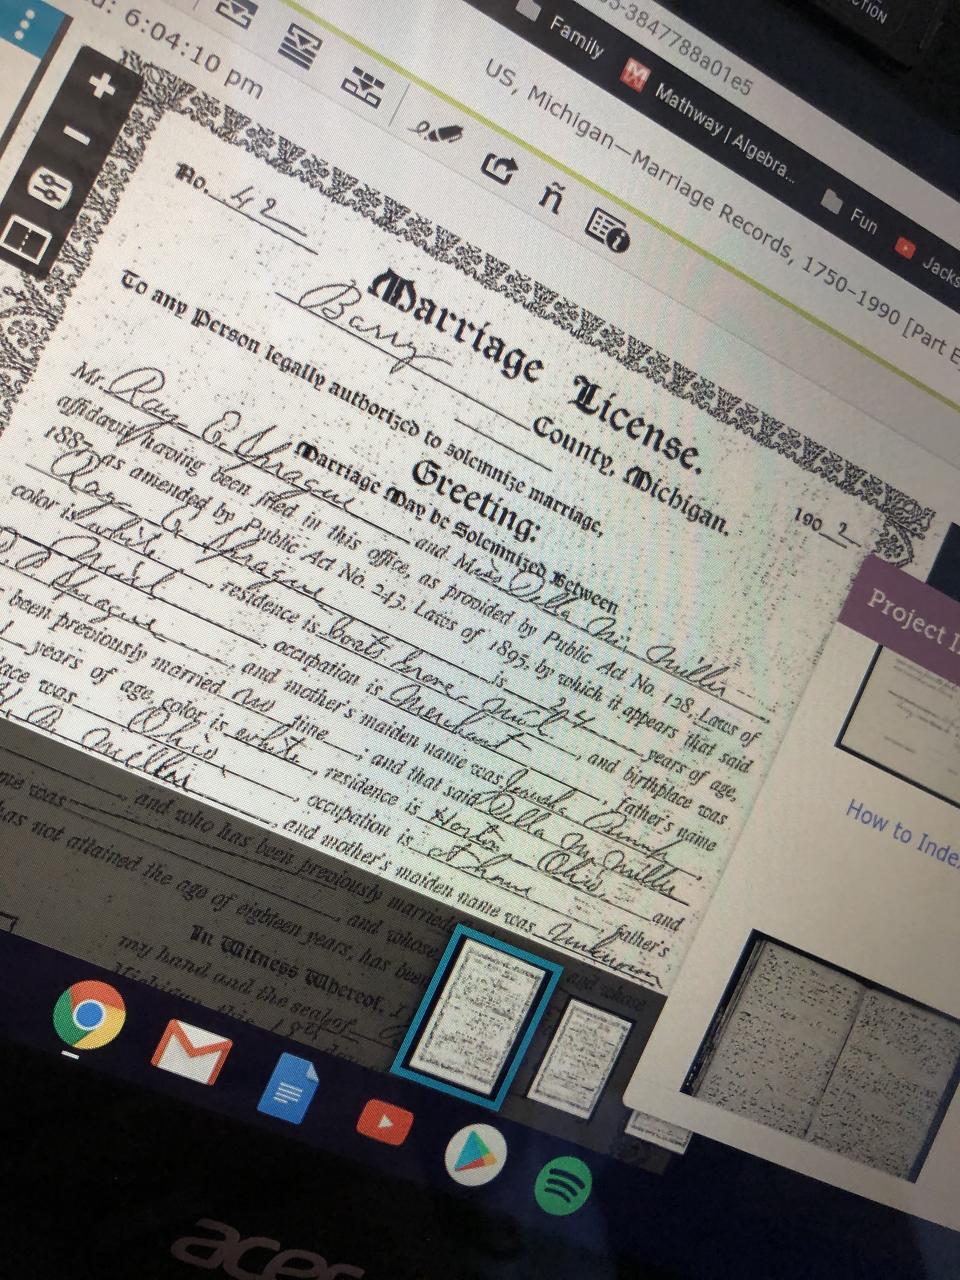 d: 6:04:10 pm
3-3847788a01e5
CTION
Family
Mathway | Algebra...
Fun
Jacks
US, Michigan—Marriage Records, 1750–1990 [Part E
ñ
No. 42
Marriage License.
Barry County, Michigan.
To any Person legally authorized to solemnize marriage,
Greeting: 190 2
Marriage May be Solemnized Between
Mr. Ray E. Sprague and Miss Della M. Miller
affidavit having been filed in this office, as provided by Public Act No. 128, Laws of
1887, as amended by Public Act No. 243, Laws of 1895, by which it appears that said
Ray E. Sprague is 24 years of age,
color is white, residence is Coats Grove Mich, and birthplace was
occupation is Merchant, father's name
Sprague, and mother's maiden name was
been previously married no time; and that said Della M. Miller
years of age, color is white, residence is Ohio, and
lace was Ohio, occupation is At home, father's
Miller, and mother's maiden name was Unknown
me was, and who has been previously married
and whose
has not attained the age of eighteen years, and whose
has been
In Witness Whereof, I
my hand and the seal of
Michigan, this
Project I
How to Inde
acer